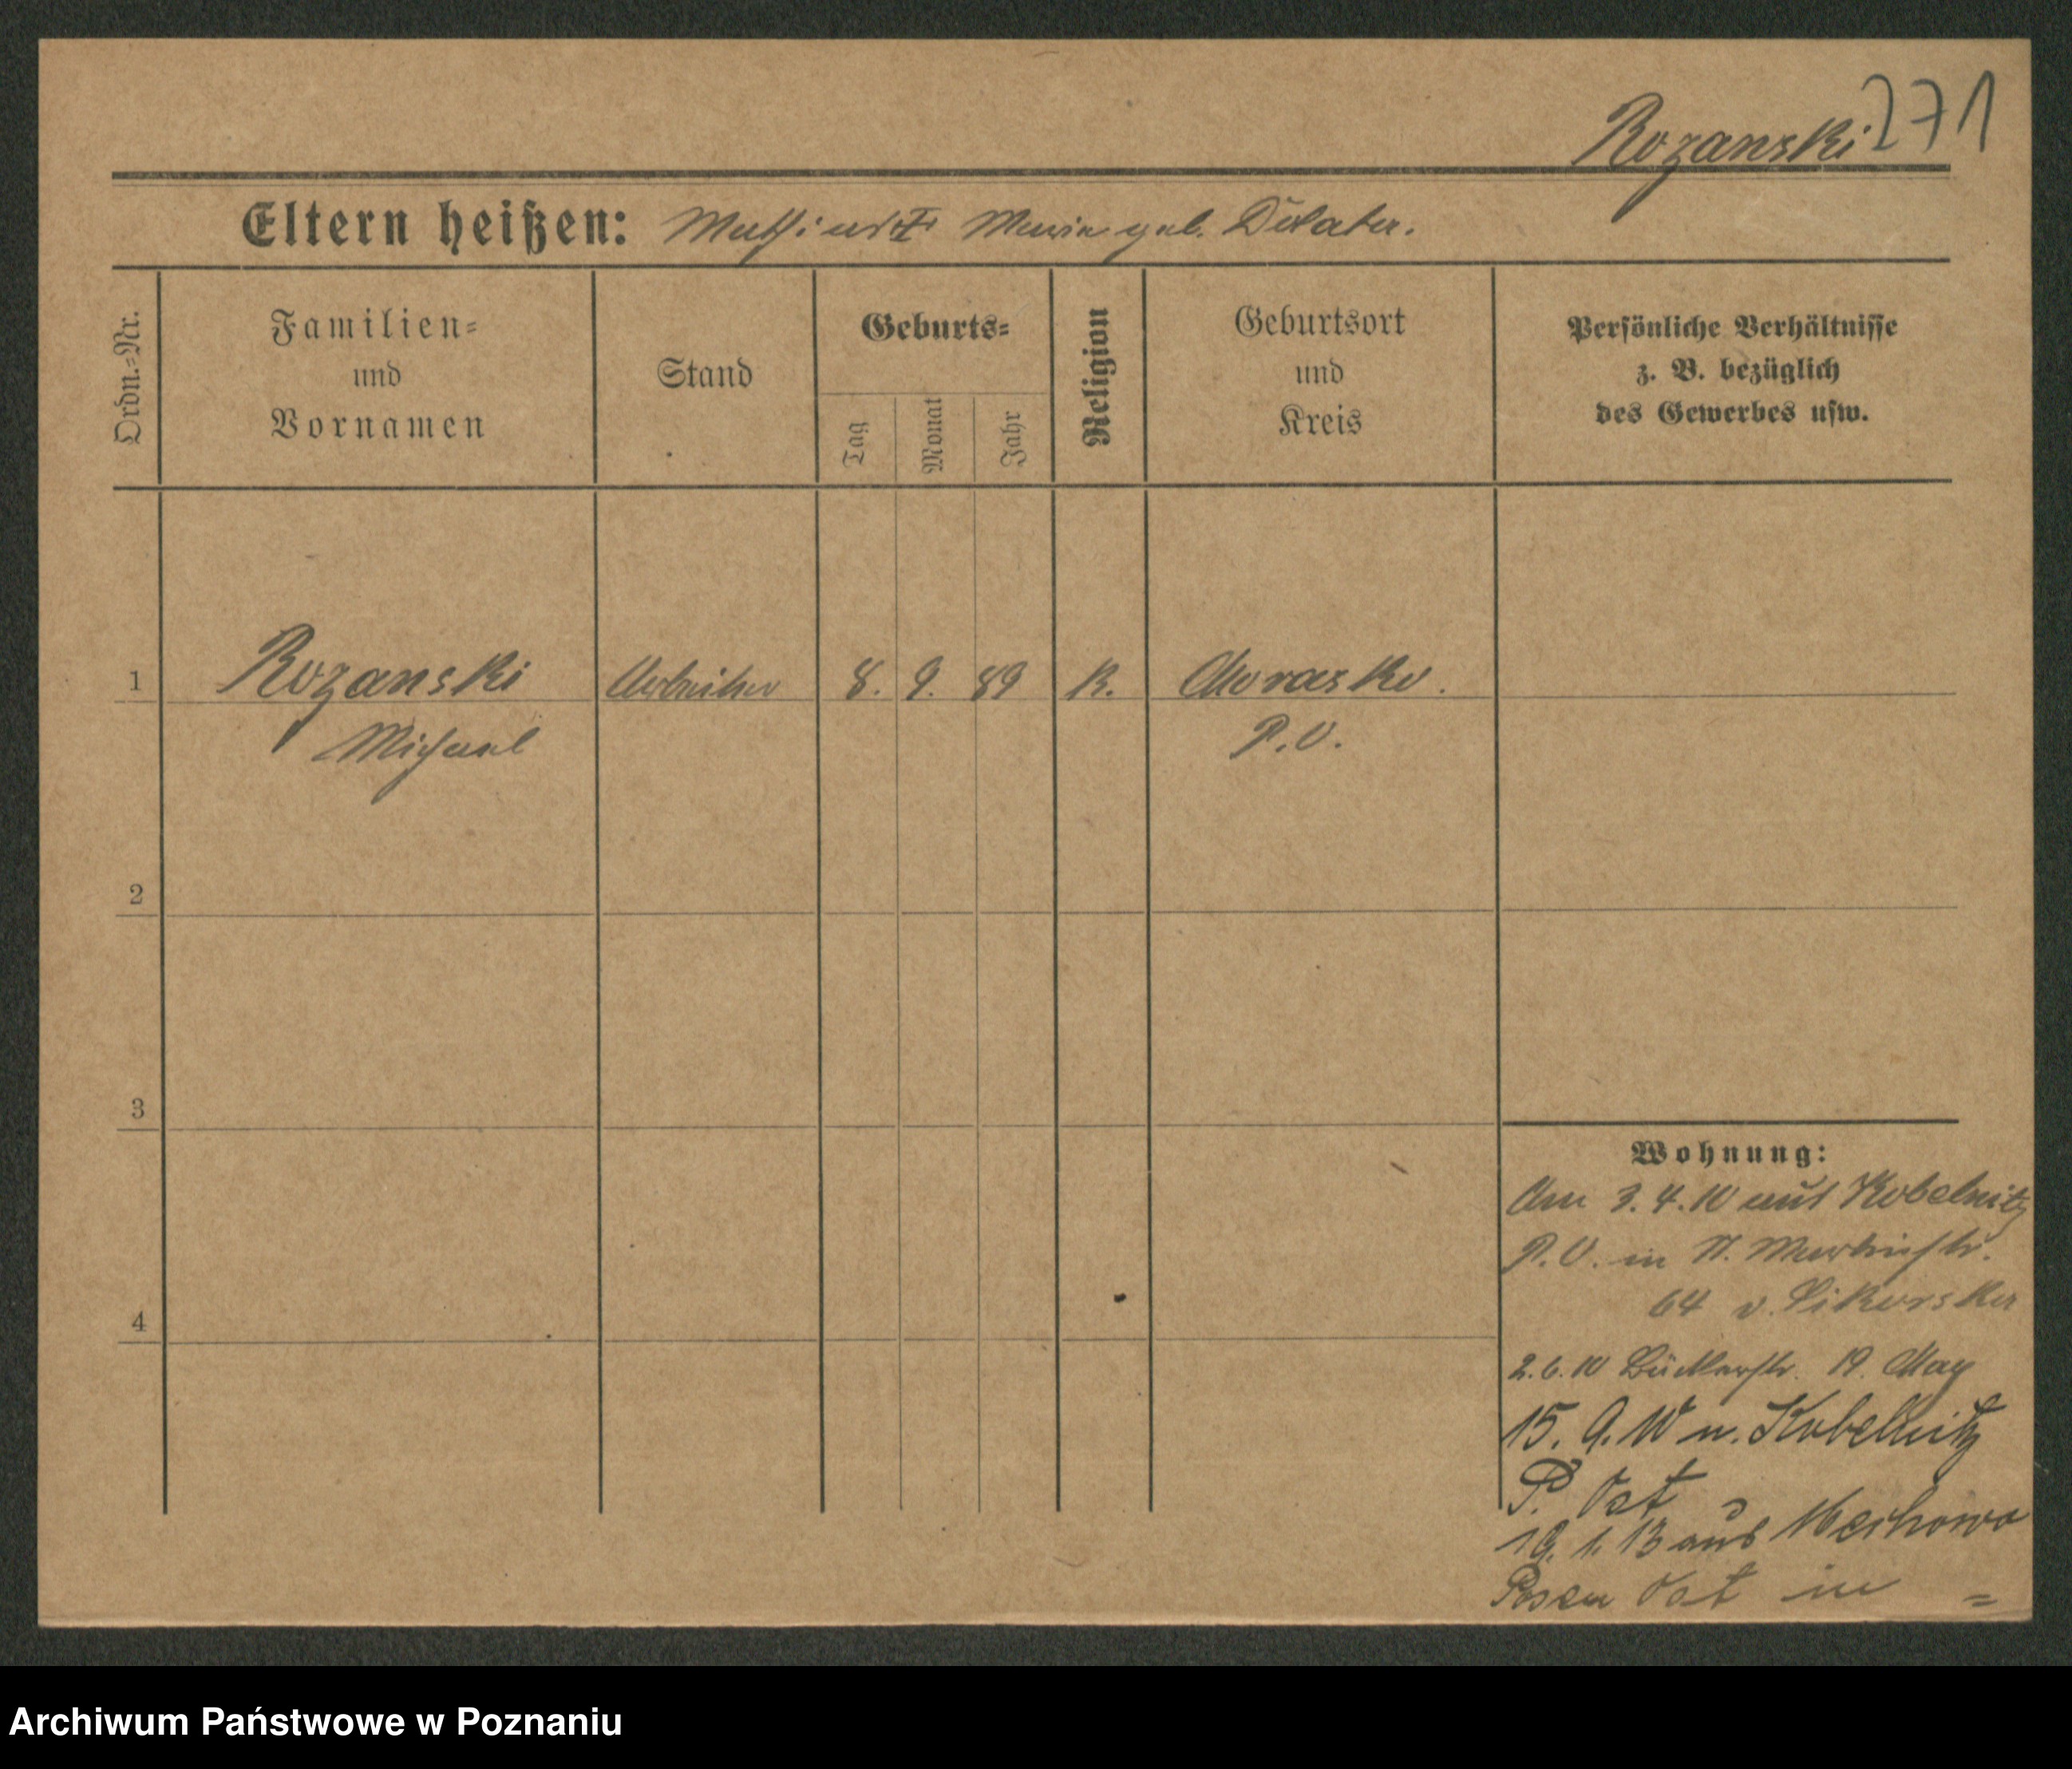 271
Rozanski
Eltern heißen: Maria geb.
Ordn.=Nr.
Familien=
und
Vornamen
Stand
Geburts=
Tag
Monat
Jahr
Religion
Geburtsort
und
Kreis
Persönliche Verhältnisse
z. B. bezüglich
des Gewerbes usw.
1 Rozanski Arbeiter 8. 9. 89 K. Morasko.
Michael P.O.
2
3
4
Wohnung:
Am 3.4.10 aus Kobelnitz
P.O. in St. Martinstr.
64 v. Sikorska
2.6.10 19. May
15. 9. 10 n. Kobelnitz
P. Ost
19. 1. 13 aus
Posen Ost in =
Archiwum Państwowe w Poznaniu